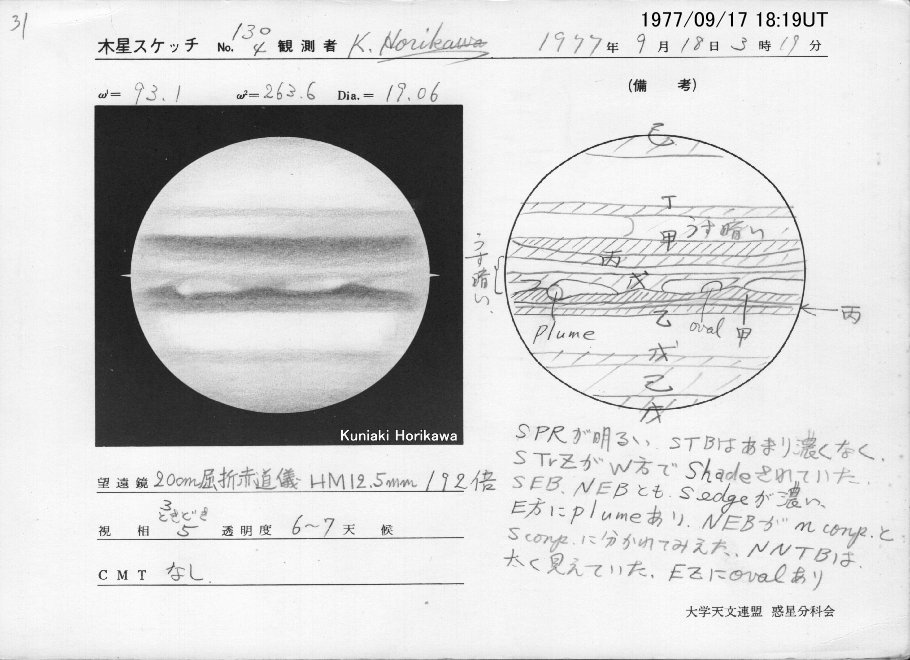 31
1977/09/17 18:19UT
木星スケッチ No. 130/4 観測者 K. Horikawa 1977年 9月 18日 3時 19分
ω¹= 93.1 ω²= 263.6 Dia.= 19.06
(備 考)
己
丁
甲 うす暗い
丙
うす暗い
戊
丙
plume
乙
oval
甲
戊
己
戊
Kuniaki Horikawa
SPRが明るい STBはあまり濃くなく.
STrZがW方でShadeされていた.
SEB、NEBとも、S edgeが濃い、
E方にplumeあり、NEBがn comp.と
S comp.に分かれてみえた、NNTBは、
太く見えていた、EZにovalあり
望遠鏡 20cm屈折赤道儀 HM12.5mm 192倍
視 相 3ときどき5 透明度 6~7 天 候
CMT なし.
大学天文連盟 惑星分科会